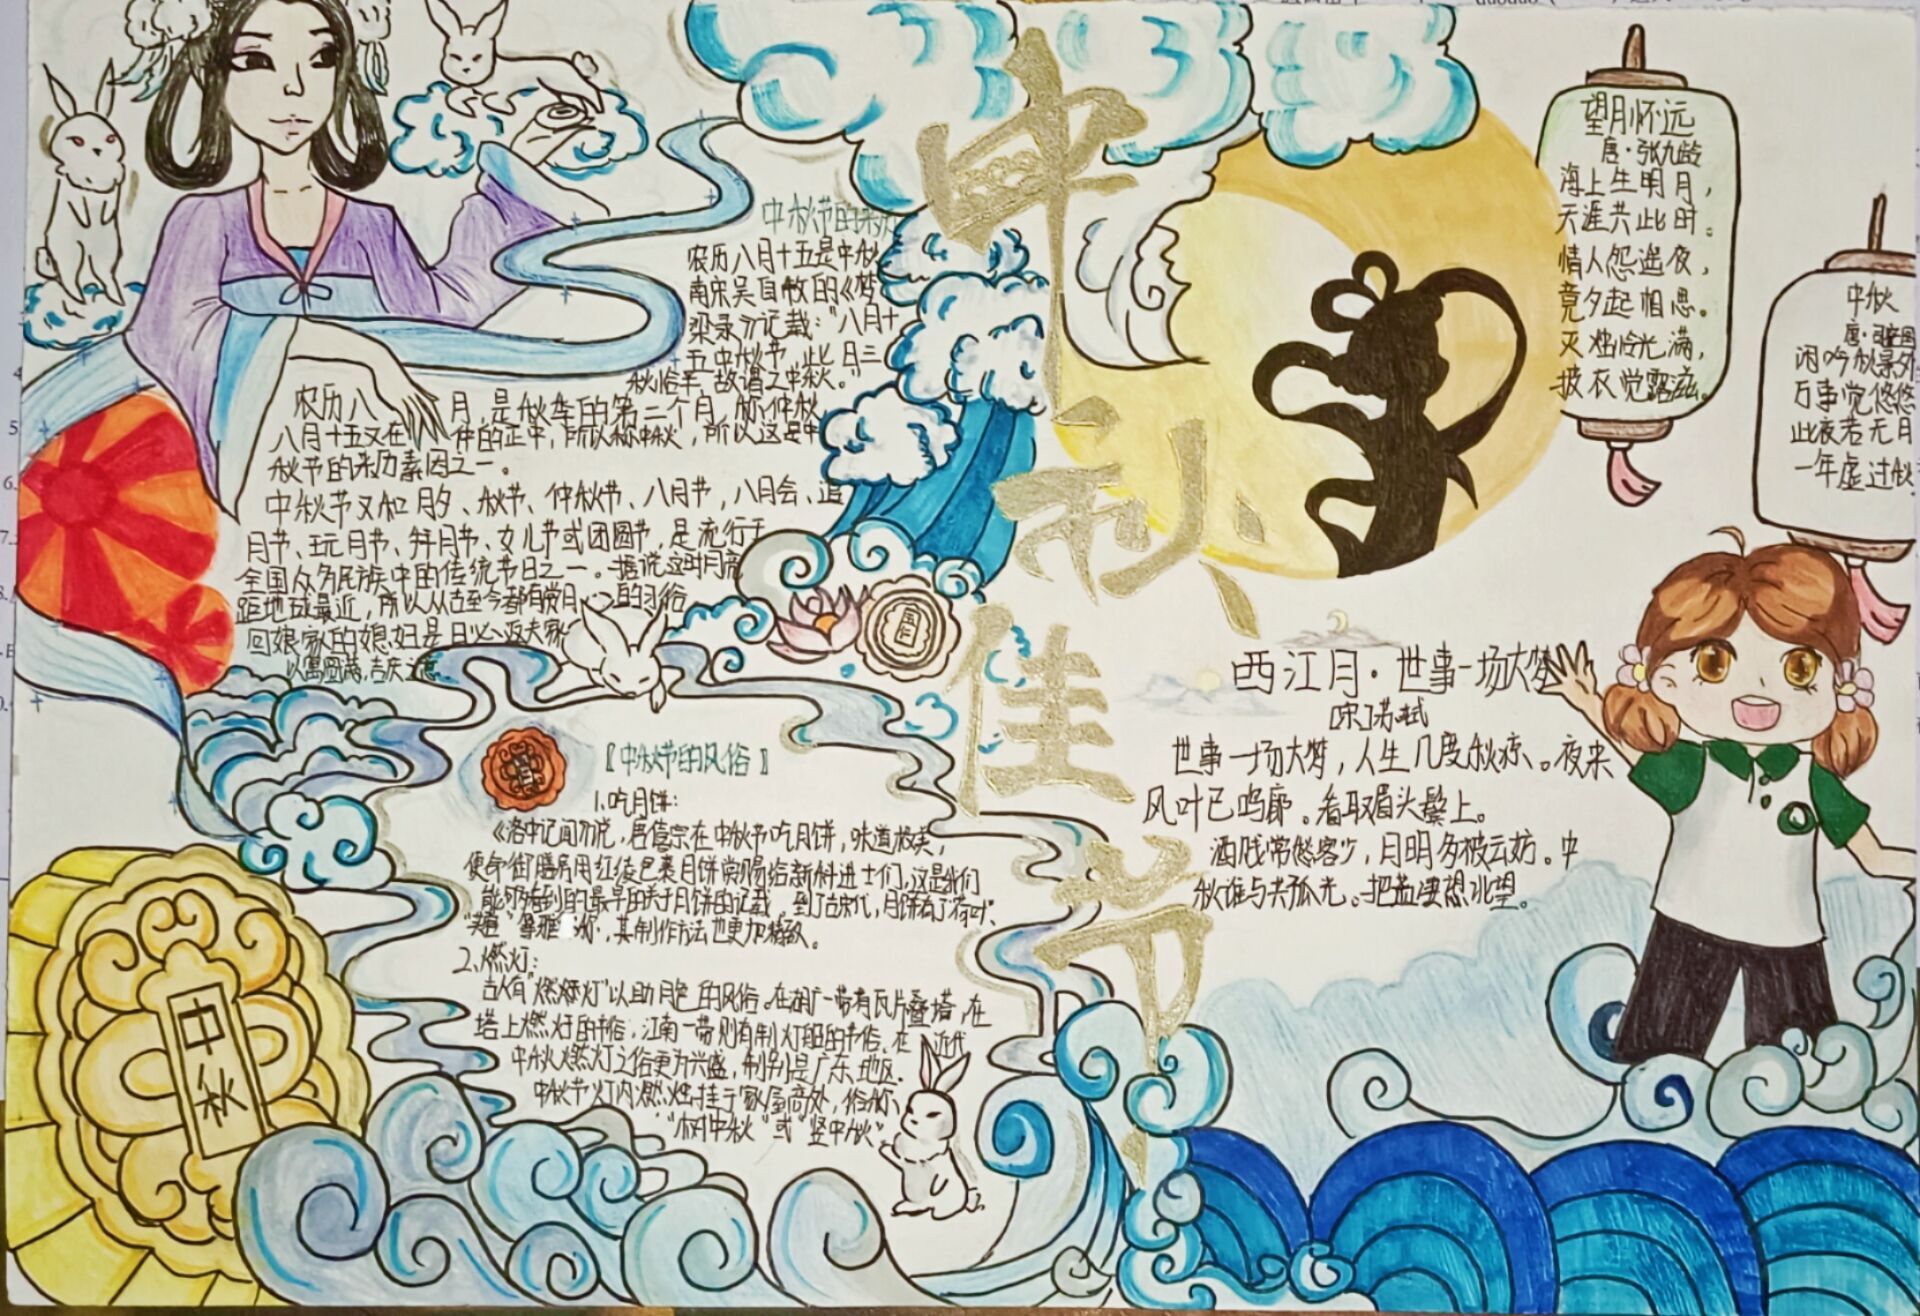 中秋佳节
中秋节的来历
农历八月十五是中秋
南宋吴自牧的《梦
梁录》记载：“八月十
五中秋节，此日三
秋恰半，故谓之中秋。”
农历八月，是秋季的第二个月，称仲秋
八月十五又在仲的正中，所以称中秋，所以这是中
秋节的来历素因之一。
中秋节又和月夕、秋节、仲秋节、八月节，八月会、追
月节、玩月节、拜月节、女儿节或团圆节，是流行于
全国众多民族中的传统节日之一。据说这时月亮
距地球最近，所以从古至今都有赏月的习俗
回娘家的媳妇是日必返夫家
以寓圆满，吉庆之意。
【中秋节的风俗】
1、吃月饼：
《洛中记闻》说，唐僖宗在中秋节吃月饼，味道极美，
便命御膳房用红绫包裹月饼赏赐给新科进士们，这是我们
能够看到的最早的关于月饼的记载。到了古宋代，月饼有了“荷叶”、
，其制作方法也更加精致。
2、燃灯：
古人有“燃灯”以助月色的风俗。在湖广一带有瓦片叠塔，在
塔上燃灯的节俗，江南一带则有制灯船的节俗。在近代
中秋燃灯之俗更为兴盛，特别是广东地区。
中秋节灯内燃烛挂于家屋高处，俗称、
“树中秋”或“竖中秋”
中秋
望月怀远
唐·张九龄
海上生明月，
天涯共此时。
情人怨遥夜，
竟夕起相思。
灭烛怜光满，
披衣觉露滋。
中秋
唐·司空图
闲吟秋景外
万事觉悠悠
此夜若无月
一年虚过秋.
西江月·世事一场大梦
[宋]苏轼
世事一场大梦，人生几度秋凉。夜来
风叶已鸣廊。看取眉头鬓上。
酒贱常愁客少，月明多被云妨。中
秋谁与共孤光。把盏凄想北望。